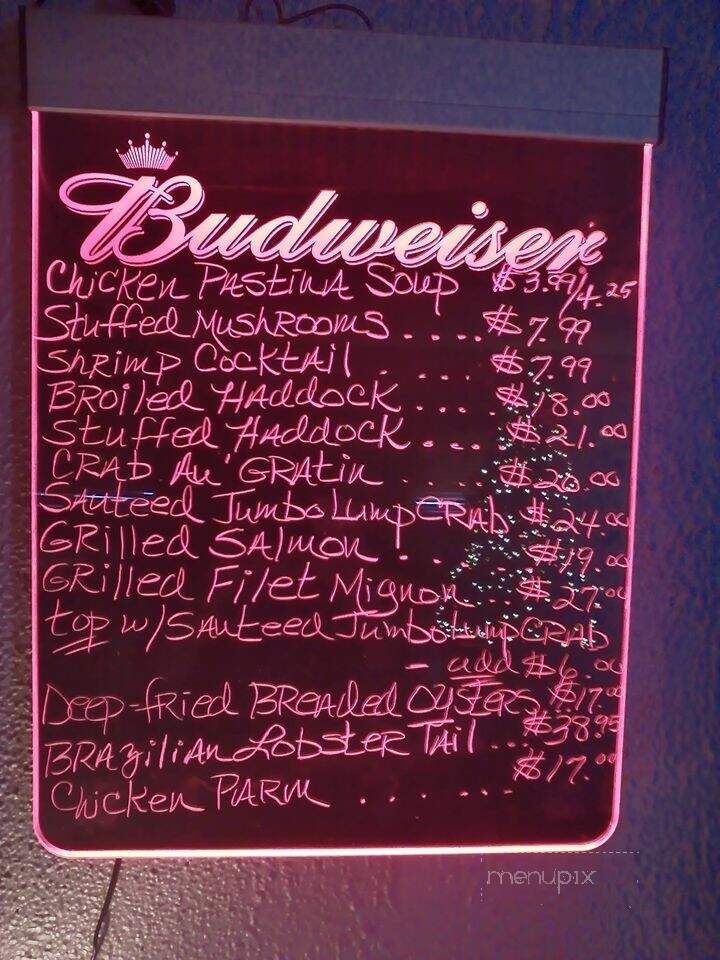 Budweiser
Chicken Pastina Soup $3.99/4.25
Stuffed Mushrooms ..... $7.99
Shrimp Cocktail ..... $7.99
Broiled Haddock .... $18.00
Stuffed Haddock .... $21.00
CRAb Au' GRAtin .... $20.00
Sauteed Jumbo Lump CRAb $24.00
GRilled SAlmon . . . $19.00
GRilled Filet Mignon .. $27.00
top w/ SAuteed Jumbo Lump CRAb
- add $6.00
Deep-fried BReaded Oysters $17.00
BRAziliAn Lobster TAil ... $38.95
Chicken PARm ...... $17.00
menupix